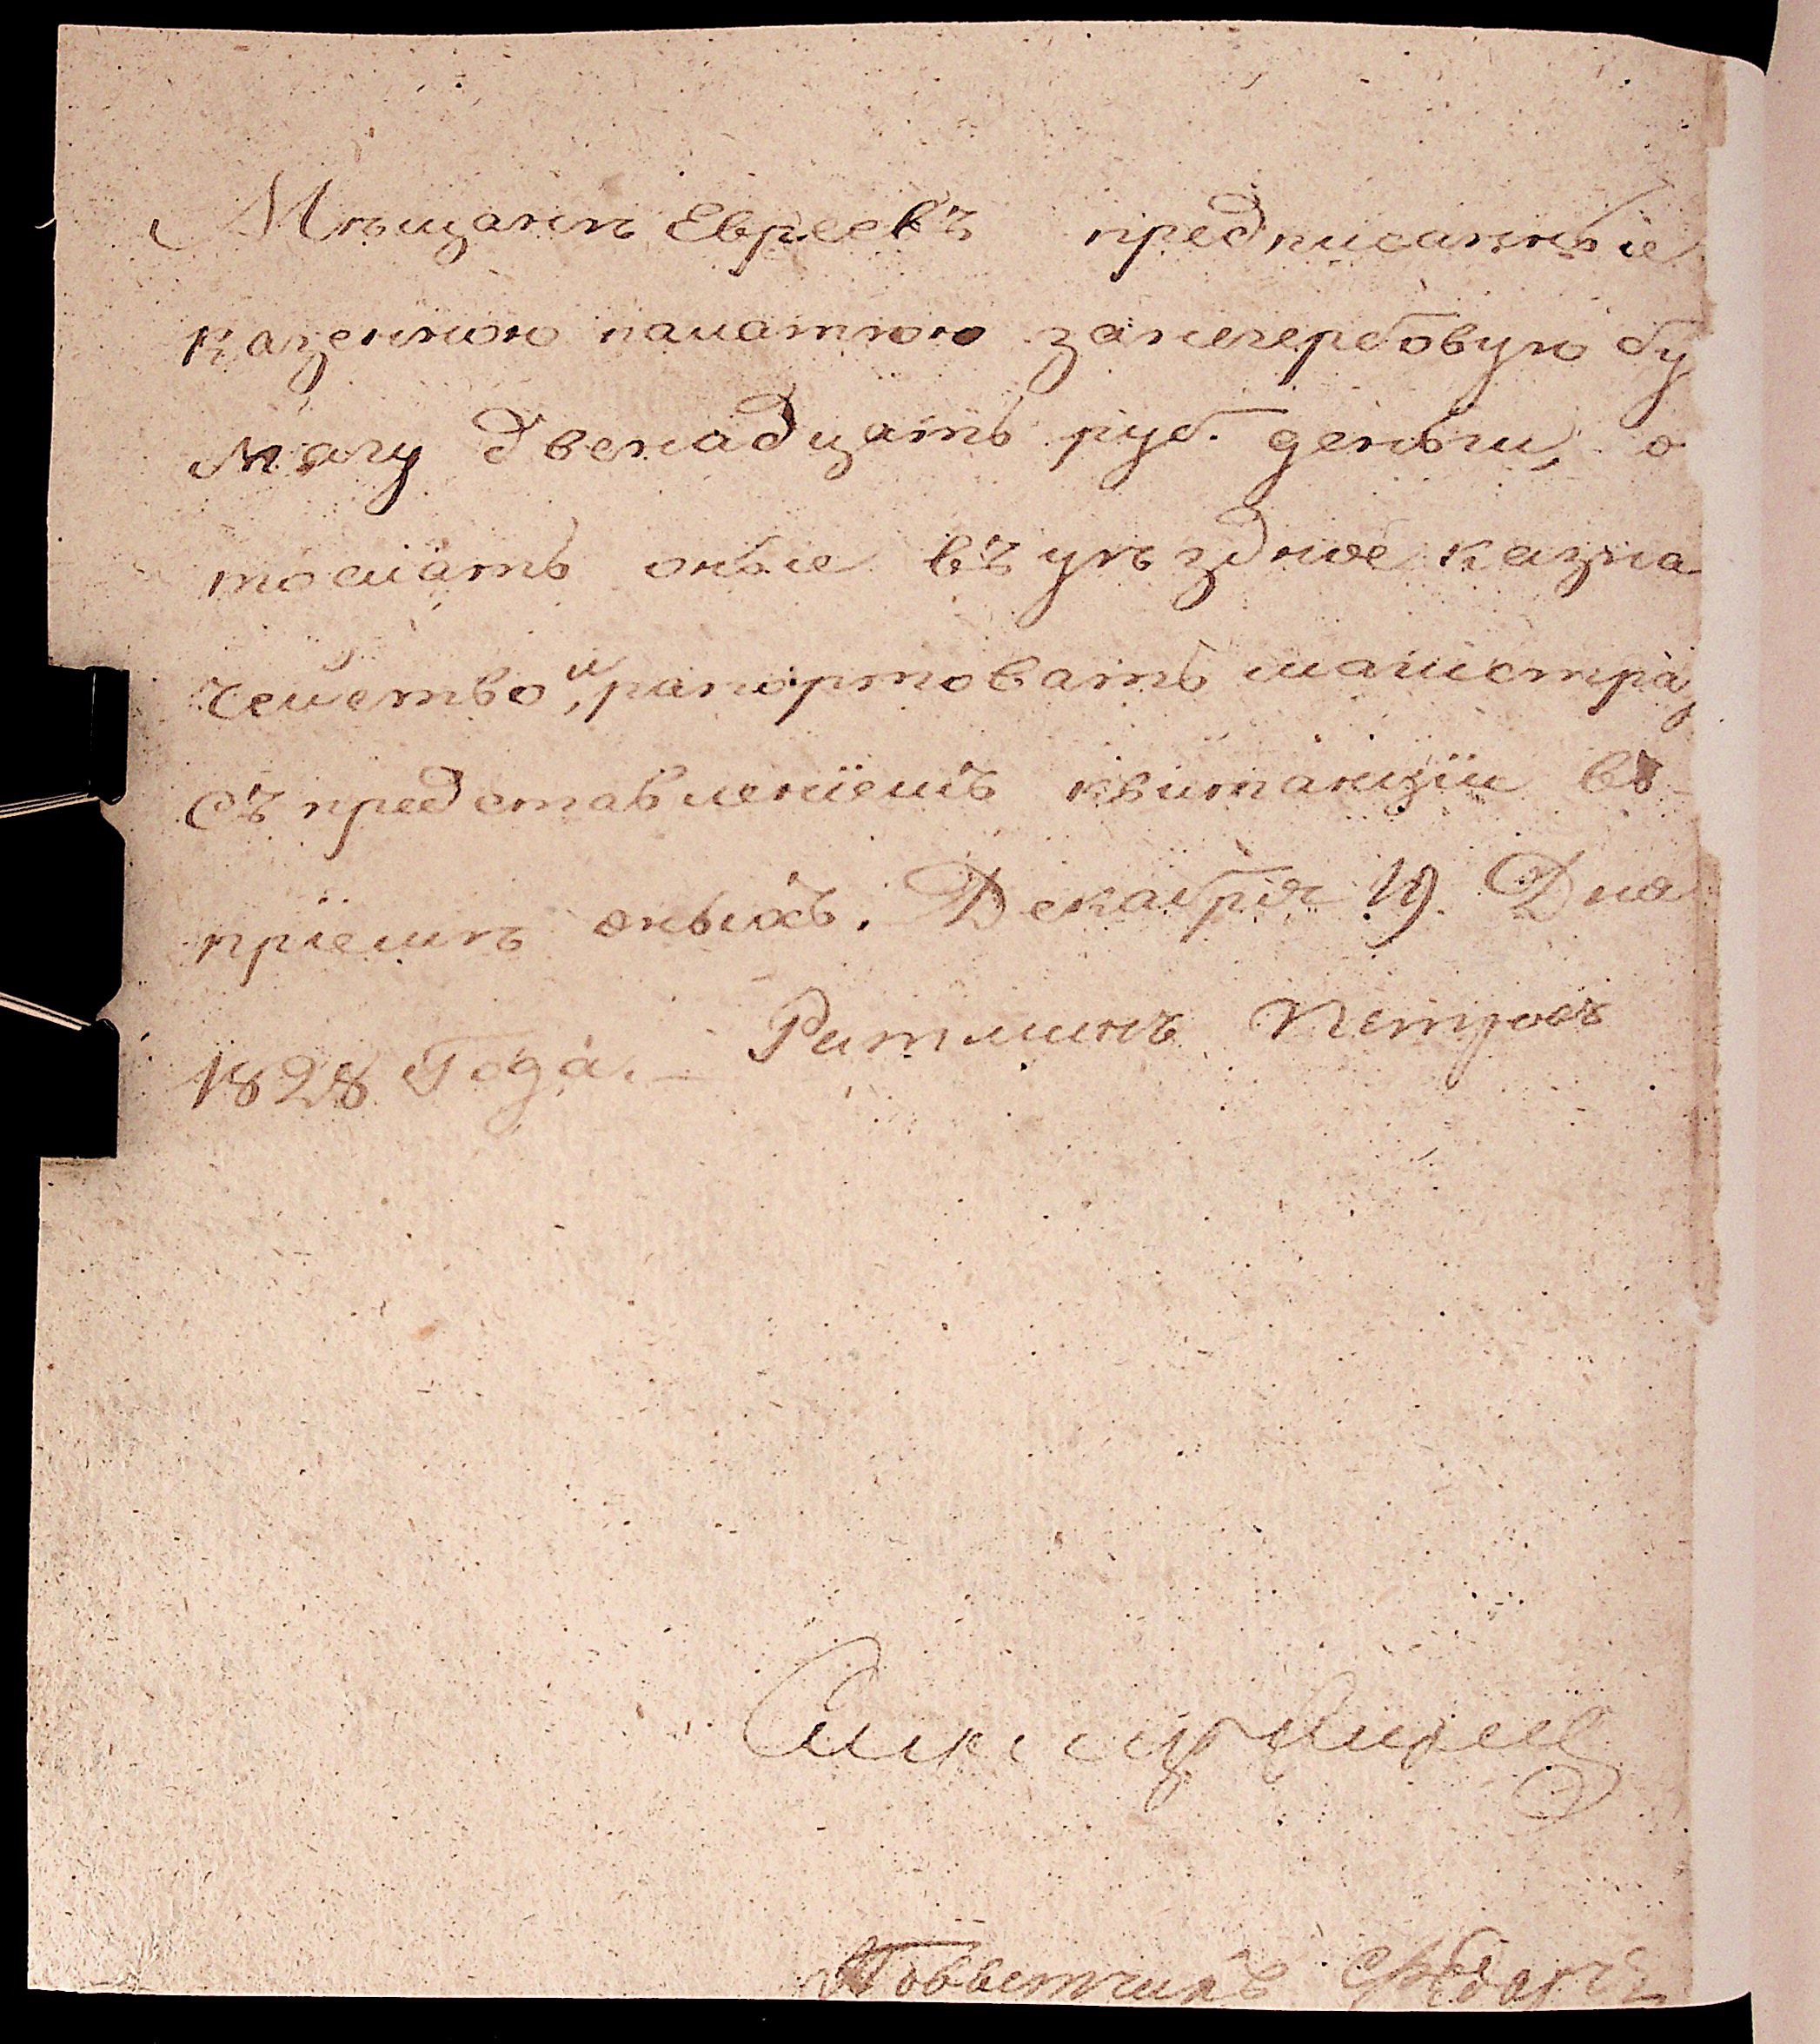 Мѣщанъ Евреевъ предписанные
казенною палатою занегербовую бу
магу двенадцать руб. деньги, о
тослать оные въ уѣздное казна
чейство, и рапортовать магистра
съ представленіемъ квитанціи въ
пріемѣ оныхъ. Декабря 19. Дня
1828 Года. Ратманъ Петровъ
Повветчикъ Федоръ